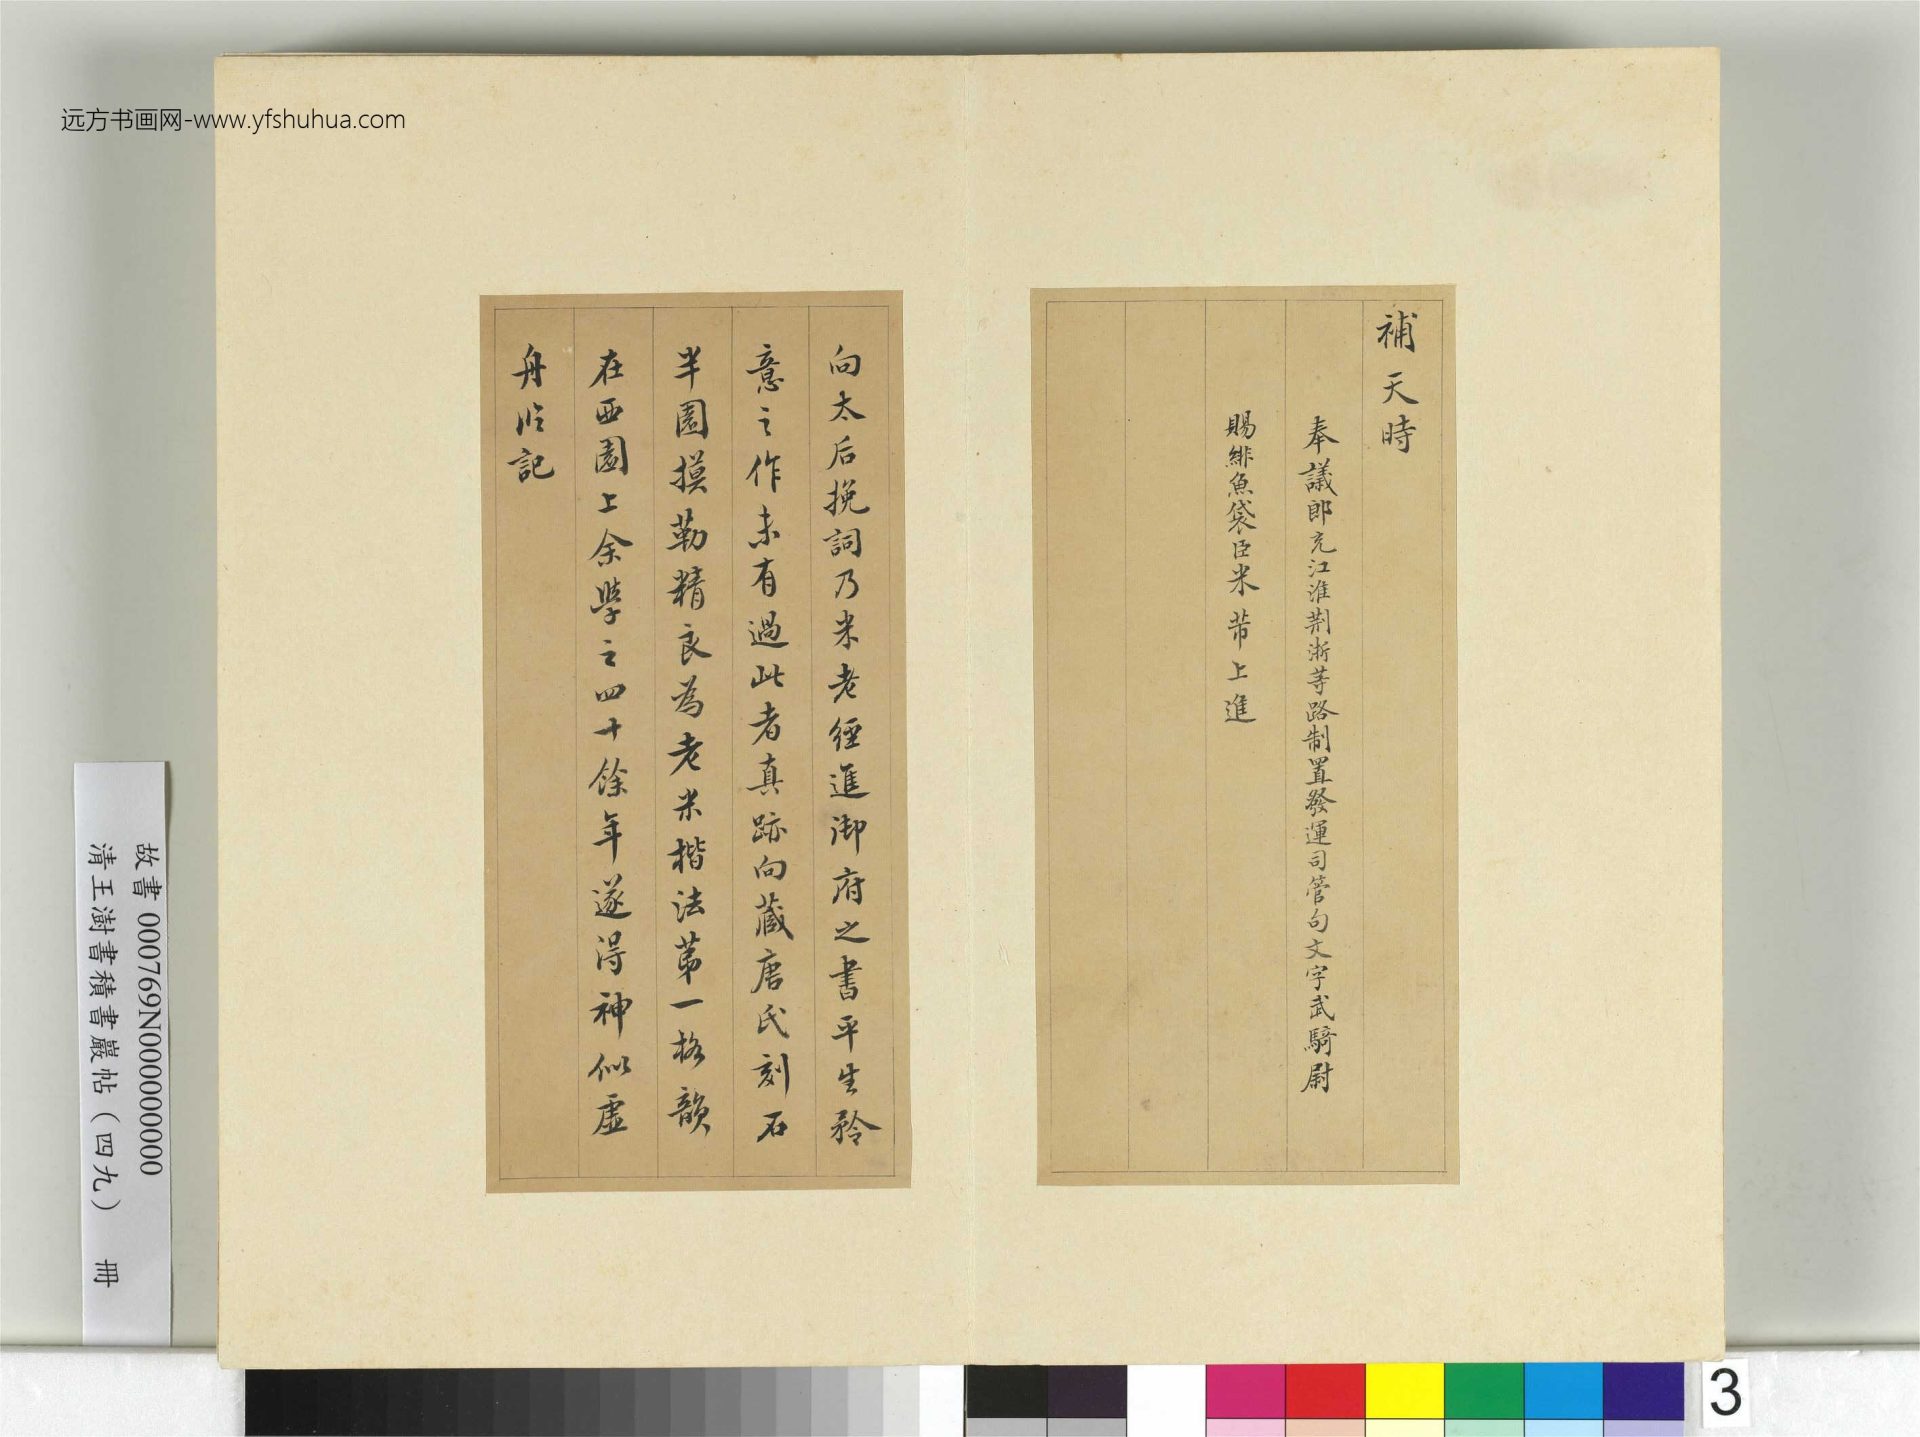 远方书画网-www.yfshuhua.com
補天時
奉議郎充江淮荆浙等路制置發運司管句文字武騎尉
賜緋魚袋臣米芾上進
向太后挽詞乃米老經進御府之書平生矜
意之作未有過此者真跡向藏唐氏刻石
半園摸勒精良為老米楷法苐一格韻
在西園上余學之四十餘年遂得神似虛
舟臨記
故書 000769N000000000
清王澍書積書巖帖（四九） 冊
3